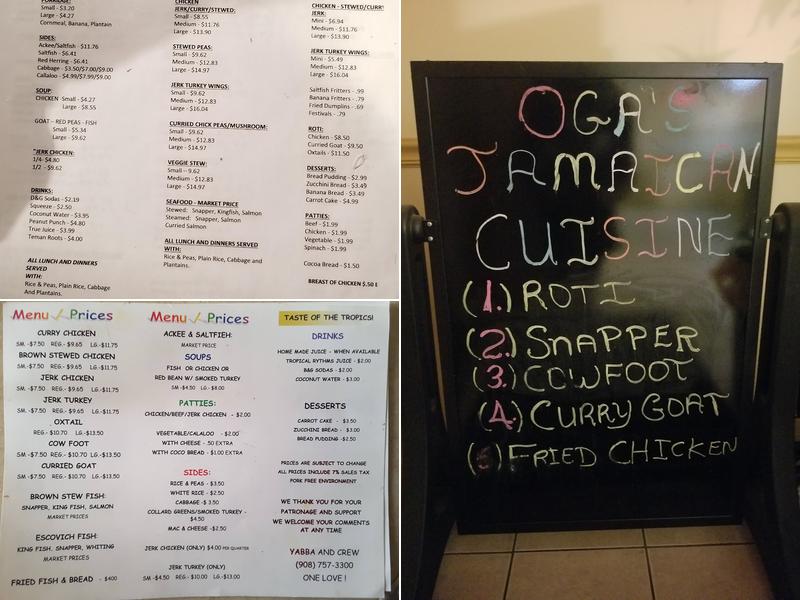 PORRIDGE:
Small - $3.20
Large - $4.27
Cornmeal, Banana, Plantain
SIDES:
Ackee/Saltfish - $11.76
Saltfish - $6.41
Red Herring - $6.41
Cabbage - $3.50/$7.00/$9.00
Callaloo - $4.99/$7.99/$9.00
SOUP:
CHICKEN -Small - $4.27
Large - $8.55
GOAT – RED PEAS - FISH
Small - $5.34
Large - $9.62
"JERK CHICKEN:
1/4- $4.80
1/2 - $9.62
DRINKS:
D&G Sodas - $2.19
Squeeze - $2.50
Coconut Water - $3.95
Peanut Punch - $4.80
True Juice - $3.99
Teman Roots - $4.00
ALL LUNCH AND DINNERS
SERVED
WITH:
Rice & Peas, Plain Rice, Cabbage
And Plantains.
CHICKEN
JERK/CURRY/STEWED:
Small - $8.55
Medium - $11.76
Large - $13.90
STEWED PEAS:
Small - $9.62
Medium - $12.83
Large - $14.97
JERK TURKEY WINGS:
Small - $9.62
Medium - $12.83
Large - $16.04
CURRIED CHICK PEAS/MUSHROOM:
Small - $9.62
Medium - $12.83
Large - $14.97
VEGGIE STEW:
Small – 9.62
Medium - $12.83
Large - $14.97
SEAFOOD - MARKET PRICE
Stewed: Snapper, Kingfish, Salmon
Steamed: Snapper, Salmon
Curried Salmon
ALL LUNCH AND DINNERS SERVED
WITH:
Rice & Peas, Plain Rice, Cabbage and
Plantains.
CHICKEN - STEWED/CURR
JERK:
Mini - $6.94
Medium - $11.76
Large - $13.90
JERK TURKEY WINGS:
Mini - $5.49
Medium - $12.83
Large - $16.04
Saltfish Fritters - .99
Banana Fritters - .79
Fried Dumplins - .69
Festivals - .79
ROTI:
Chicken - $8.50
Curried Goat - $9.50
Oxtails - $11.50
DESSERTS:
Bread Pudding - $2.99
Zucchini Bread - $3.49
Banana Bread - $3.49
Carrot Cake - $4.99
PATTIES:
Beef - $1.99
Chicken - $1.99
Vegetable - $1.99
Spinach - $1.99
Cocoa Bread - $1.50
BREAST OF CHICKEN $.50 E
Menu Prices
CURRY CHICKEN
SM -$7.50 REG.- $9.65 LG.-$11.75
BROWN STEWED CHICKEN
SM -$7.50 REG.- $9.65 LG.-$11.75
JERK CHICKEN
SM -$7.50 REG.- $9.65 LG.-$11.75
JERK TURKEY
SM -$7.50 REG.- $9.65 LG.-$11.75
OXTAIL
REG.- $10.70 LG.-$13.50
COW FOOT
SM -$7.50 REG.- $10.70 LG.-$13.50
CURRIED GOAT
SM -$7.50 REG.- $10.70 LG.-$13.50
BROWN STEW FISH:
SNAPPER, KING FISH, SALMON
MARKET PRICES
ESCOVICH FISH:
KING FISH, SNAPPER, WHITING
MARKET PRICES
FRIED FISH & BREAD - $400
Menu Prices
ACKEE & SALTFIEH:
MARKET PRICE
SOUPS
FISH OR CHICKEN OR
RED BEAN W/ SMOKED TURKEY
SM -$4.50 LG.- $8.00
PATTIES:
CHICKEN/BEEF/JERK CHICKEN - $2.00
VEGETABLE/CALALOO - $2.00
WITH CHEESE - .50 EXTRA
WITH COCO BREAD - $1.00 EXTRA
SIDES:
RICE & PEAS - $3.50
WHITE RICE - $2.50
CABBAGE -$ 3.50
COLLARD GREENS/SMOKED TURKEY -
$4.50
MAC & CHEESE -$2.50
JERK CHICKEN (ONLY) $4.00 PER QUARTER
JERK TURKEY (ONLY)
SM -$4.50 REG.- $10.00 LG.-$13.00
TASTE OF THE TROPICS!
DRINKS
HOME MADE JUICE - WHEN AVAILABLE
TROPICAL RYTHMS JUICE - $2.00
B&G SODAS - $2.00
COCONUT WATER - $3.00
DESSERTS
CARROT CAKE - $3.50
ZUCCHINI BREAD - $3.00
BREAD PUDDING -$2.50
PRICES ARE SUBJECT TO CHANGE
ALL PRICES INCLUDE 7% SALES TAX
PORK FREE ENVIRONMENT
WE THANK YOU FOR YOUR
PATRONAGE AND SUPPORT
WE WELCOME YOUR COMMENTS
AT ANY TIME
YABBA AND CREW
(908) 757-3300
ONE LOVE !
OGA'S
JAMAICAN
CUISINE
(1.) ROTI
(2.) SNAPPER
(3.) COWFOOT
(4.) CURRY GOAT
(5) FRIED CHICKEN